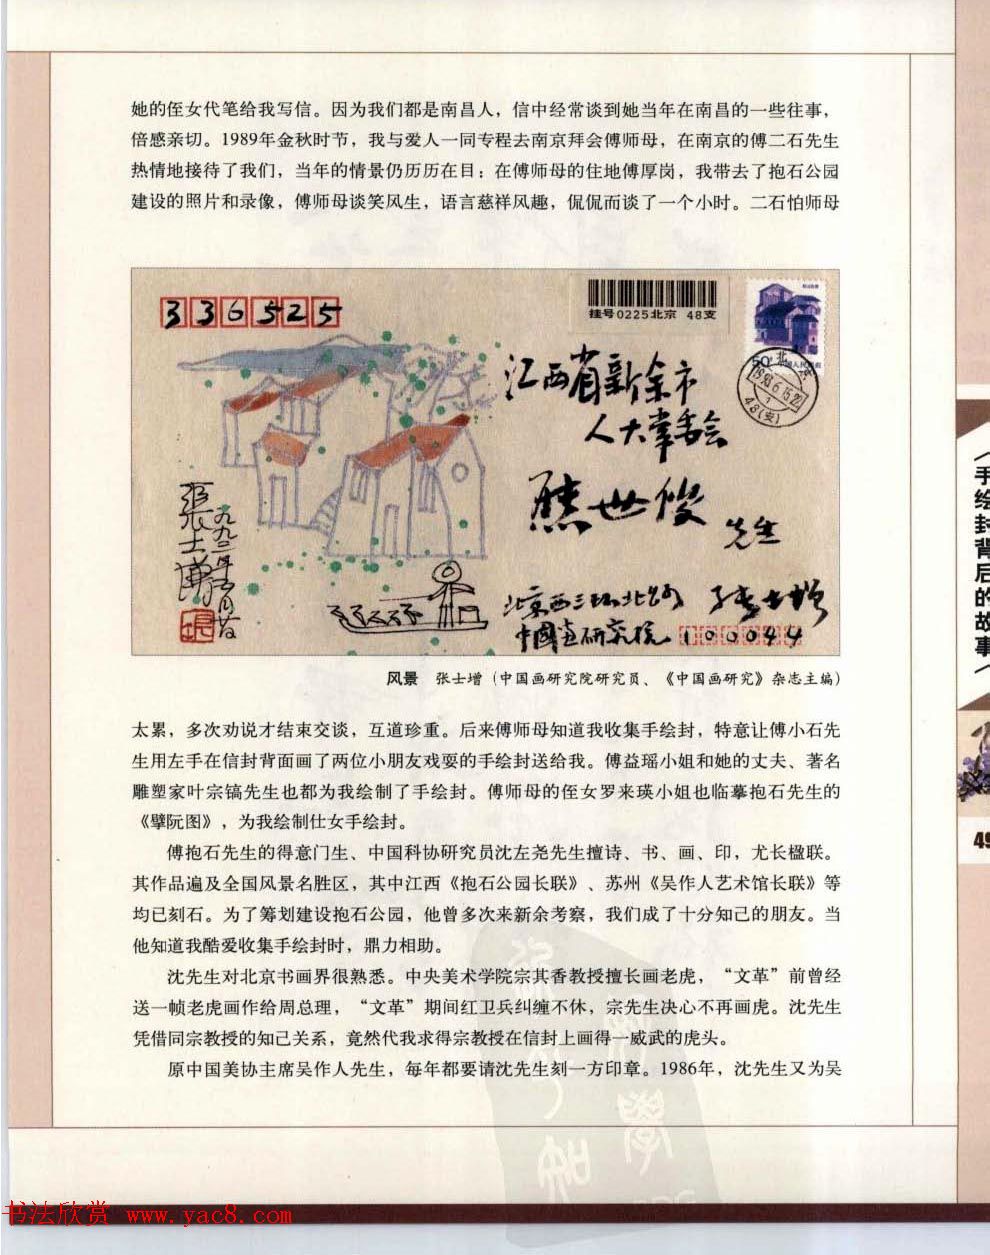 她的侄女代笔给我写信。因为我们都是南昌人，信中经常谈到她当年在南昌的一些往事，
倍感亲切。1989年金秋时节，我与爱人一同专程去南京拜会傅师母，在南京的傅二石先生
热情地接待了我们，当年的情景仍历历在目：在傅师母的住地傅厚岗，我带去了抱石公园
建设的照片和录像，傅师母谈笑风生，语言慈祥风趣，侃侃而谈了一个小时。二石怕师母
336525
挂号0225北京 48支
50
江西省新余市
人大常委会
世俊
先生
张士增
北京西三环北路
中國画研究院
张士增
100044
风景 张士增（中国画研究院研究员、《中国画研究》杂志主编）
太累，多次劝说才结束交谈，互道珍重。后来傅师母知道我收集手绘封，特意让傅小石先
生用左手在信封背面画了两位小朋友戏耍的手绘封送给我。傅益瑶小姐和她的丈夫、著名
雕塑家叶宗镐先生也都为我绘制了手绘封。傅师母的侄女罗来瑛小姐也临摹抱石先生的
《擘阮图》，为我绘制仕女手绘封。
傅抱石先生的得意门生、中国科协研究员沈左尧先生擅诗、书、画、印，尤长楹联。
其作品遍及全国风景名胜区，其中江西《抱石公园长联》、苏州《吴作人艺术馆长联》等
均已刻石。为了筹划建设抱石公园，他曾多次来新余考察，我们成了十分知己的朋友。当
他知道我酷爱收集手绘封时，鼎力相助。
沈先生对北京书画界很熟悉。中央美术学院宗其香教授擅长画老虎，“文革”前曾经
送一帧老虎画作给周总理，“文革”期间红卫兵纠缠不休，宗先生决心不再画虎。沈先生
凭借同宗教授的知己关系，竟然代我求得宗教授在信封上画得一威武的虎头。
原中国美协主席吴作人先生，每年都要请沈先生刻一方印章。1986年，沈先生又为吴
手绘封背后的故事
49
书法欣赏 www.yac8.com